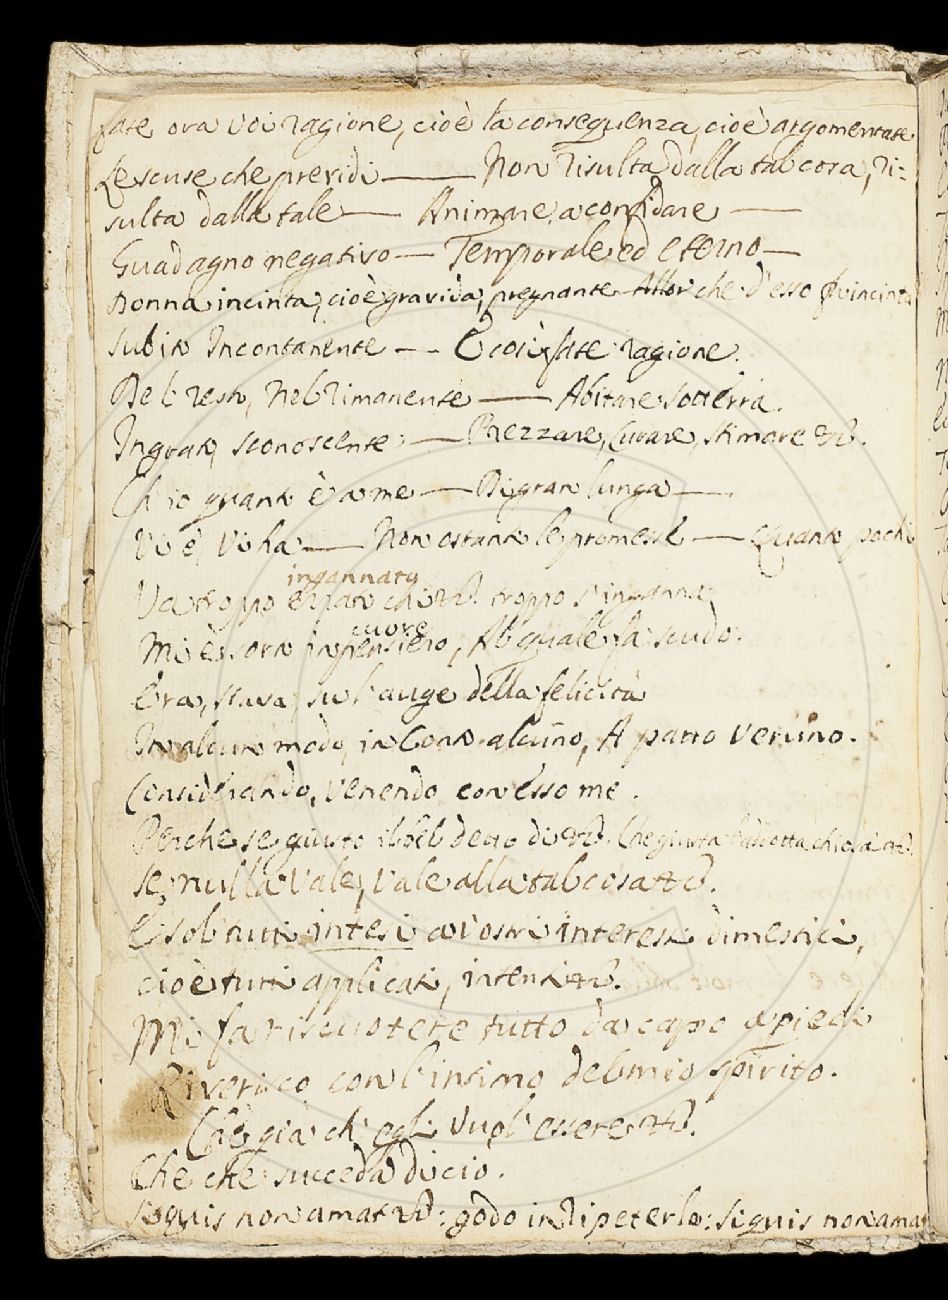 fate ora voi ragione, cioè la conseguenza, cioè argomentate
Le scuse che previdi —— Non risulta dalla tal cosa, ri-
sulta dalla tale — Animare, a confidare —
Guadagno negativo — Temporale ed eterno —
Donna incinta, cioè gravida, pregnante Allor che d'esso fu incinta
Subito Incontanente — E così fate ragione.
Del resto, Nel rimanente — Abitare sotterra.
Ingrato, sconoscente — Prezzare, Curare, stimare &c.
Ch'io quanto è a me — Di gran lunga —
Vi è, Vi ha — Non ostante le promesse — Quanto pochi
ingannato
Va troppo errato chi &c. troppo s'inganna
cuore
Mi è ora in pensiero, Al quale fa scudo.
Era, stava, sul'auge della felicità
In alcun modo, in Conto alcuno, A patto veruno.
Considerando, venendo con esso me.
Perche se giusto il bel detto di &c. Che giusta l'addotta chiosa &c.
Se nulla vale, vale alla tal cosa &c.
E sol tutti intesi a vostri interessi dimestici,
cioè tutti applicati, intenti &c.
Mi fa riscuotere tutto da capo a piedi
Riverisco con l'intimo del mio spirito.
Che già ch'egli vuol'essere &c.
Che che succeda di cio.
Siquis non amat &c: godo in ripeterlo: Siquis non amat